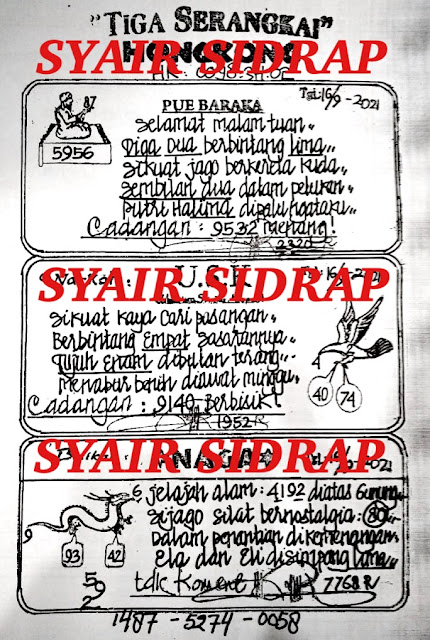 "TIGA SERANGKAI"
HONGKONG
SYAIR SIDRAP
PUE BARAKA
Tgl:16/9-2021
87
5956
Selamat malam tuan
Tiga Dua berbintang lima
Sikuat jago berkereta kuda
Sembilan dua dalam pelukan
Putri Halima
Cadangan : 9532 menang!
2320
SYAIR SIDRAP
U.S.K
Sikuat kaya cari pasangan
Berbintang Empat sasarannya
Tujuh Enam dibulan terang
Menabur benih diawal minggu
Cadangan : 9140 Berbisik!
1952
40 74
SYAIR SIDRAP
NAGA
jelajah alam : 4192 diatas Gunung
Sijago silat bernostalgia : 80
Dalam penantian dikemenangan
Ela dan Eli disimpang lima
tdk Koment
7768
93 42
592
1487 - 5274 - 0058